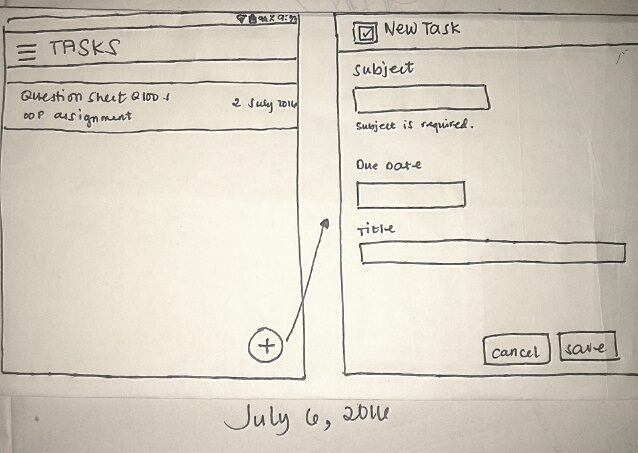 TASKS
Question Sheet Q100s
OOP assignment
2 July 2016
New Task
Subject
Subject is required.
Due Date
Title
cancel
save
July 6, 2016